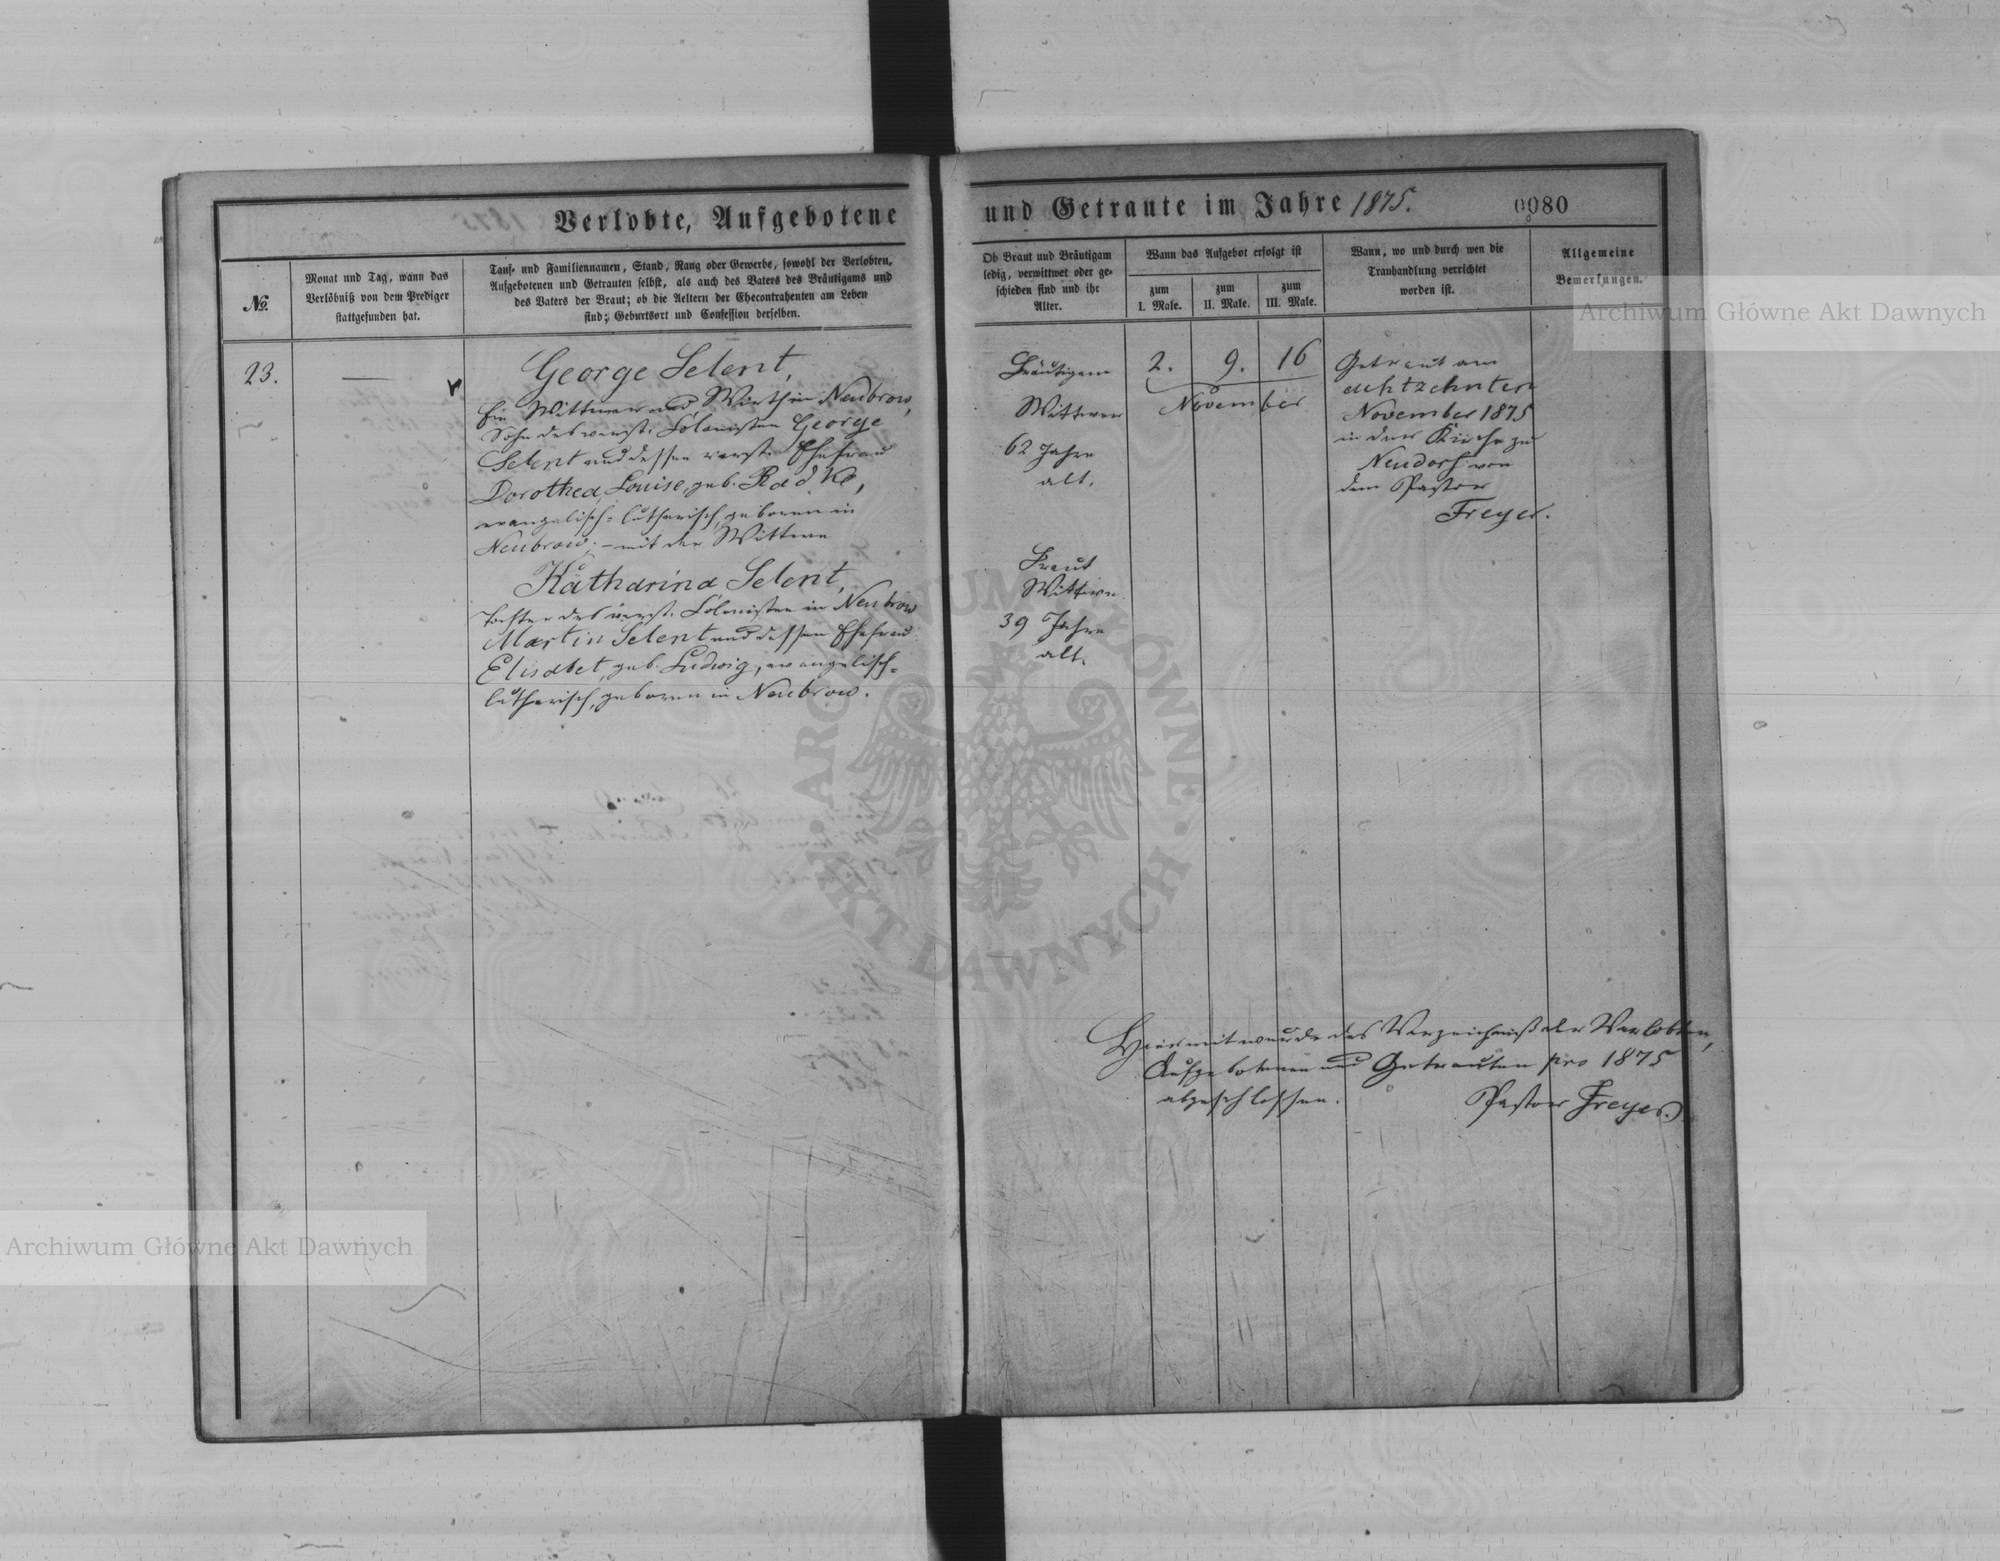 Verlobte, Aufgebotene und Getraute im Jahre 1875.
0080
No.
Monat und Tag, wann das
Verlöbniß von dem Prediger
stattgefunden hat.
Tauf- und Familiennamen, Stand, Rang oder Gewerbe, sowohl der Verlobten,
Aufgebotenen und Getrauten selbst, als auch des Vaters des Bräutigams und
des Vaters der Braut; ob die Aeltern der Ehecontrahenten am Leben
sind; Geburtsort und Confession derselben.
Ob Braut und Bräutigam
ledig, verwittwet oder ge-
schieden sind und ihr
Alter.
Wann das Aufgebot erfolgt ist
zum
I. Male.
zum
II. Male.
zum
III. Male.
Wann, wo und durch wen die
Trauhandlung verrichtet
worden ist.
Allgemeine
Bemerkungen.
23.
—
George Selent,
Ein Wittwer und Wirth in Neubrow,
Sohn des verst. Colonisten George
Selent und dessen verst. Ehefrau
Dorothea Louise, geb. Radke,
evangelisch-lutherisch, geboren in
Neubrow; – mit der Wittwe
Katharina Selent,
Tochter des verst. Colonisten in Neubrow
Martin Selent und dessen Ehefrau
Elisabet, geb. Ludwig, evangelisch-
lutherisch, geboren in Neubrow.
Bräutigam
Wittwer
62 Jahre
alt.
Braut
Wittwe
39 Jahre
alt.
2. 9. 16
November
Getraut am
achtzehnten
November 1875
in der Kirche zu
Neudorf von
dem Pastor
Freyer.
Hiermit wurde das Verzeichniß der Verlobten,
Aufgebotenen und Getrauten pro 1875
abgeschlossen.
Pastor Freyer.
Archiwum Główne Akt Dawnych
ARCHIWUM GŁÓWNE • AKT DAWNYCH •
Archiwum Główne Akt Dawnych